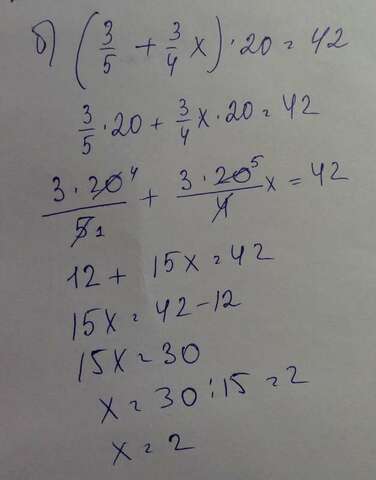 б) (3/5 + 3/4 x) · 20 = 42
3/5 · 20 + 3/4 x · 20 = 42
3 · 20 4 / 5 1 + 3 · 20 5 / 4 x = 42
12 + 15x = 42
15x = 42 - 12
15x = 30
x = 30 : 15 = 2
x = 2